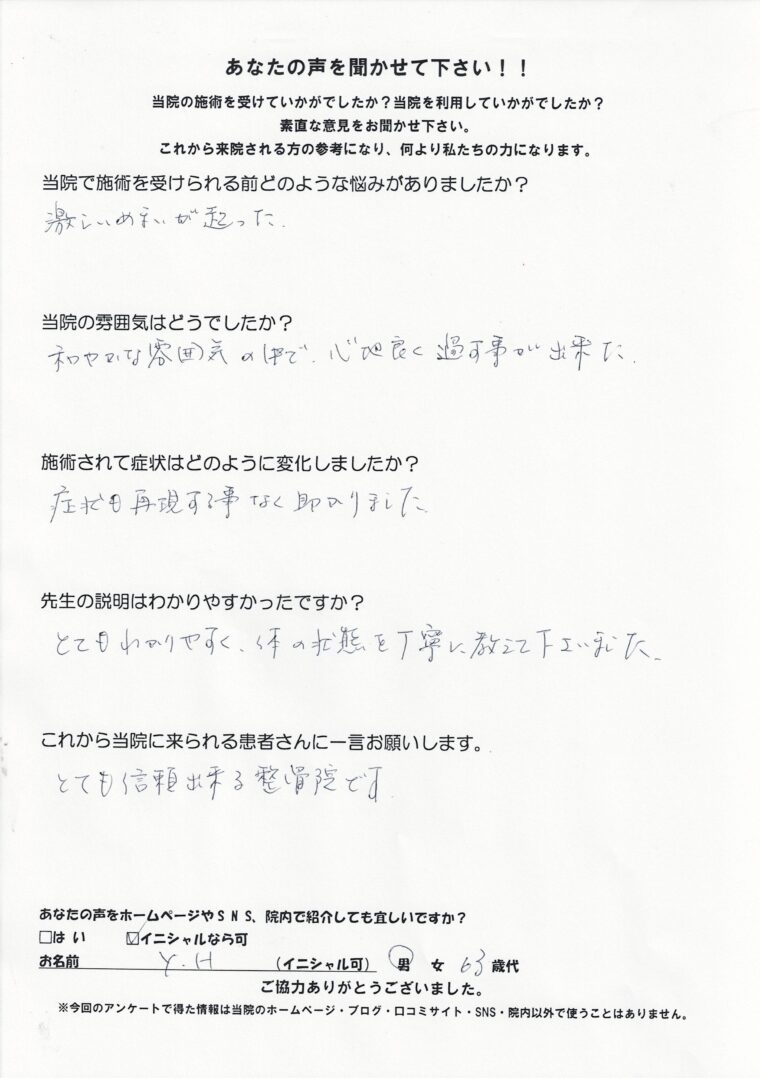 あなたの声を聞かせて下さい！！
当院の施術を受けていかがでしたか？当院を利用していかがでしたか？
素直な意見をお聞かせ下さい。
これから来院される方の参考になり、何より私たちの力になります。
当院で施術を受けられる前どのような悩みがありましたか？
激しいめまいが起った.
当院の雰囲気はどうでしたか？
和やかな雰囲気の中で、心地良く過す事が出来た.
施術されて症状はどのように変化しましたか？
症状も再現する事なく助かりました.
先生の説明はわかりやすかったですか？
とてもわかりやすく、体の状態を丁寧に教えて下さいました.
これから当院に来られる患者さんに一言お願いします。
とても信頼出来る整骨院です.
あなたの声をホームページやＳＮＳ、院内で紹介しても宜しいですか？
□はい ☑イニシャルなら可
お名前 Y.H （イニシャル可） 男 女 63歳代
ご協力ありがとうございました。
※今回のアンケートで得た情報は当院のホームページ・ブログ・口コミサイト・SNS・院内以外で使うことはありません。